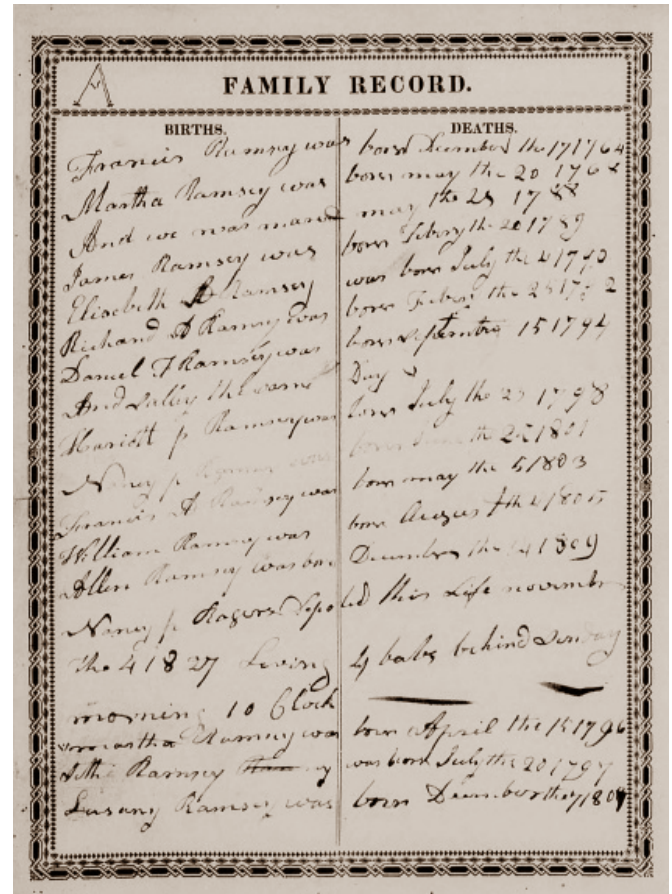 FAMILY RECORD.
BIRTHS. DEATHS.
Francis Ramsey was born December the 17 1764
Martha Ramsey was born may the 20 176
And we was may the 28 1788
James Ramsey was born the 20 1789
Elisebeth A Ramsey was born July the 4 17
Richard A Ramsey was born the 25 17 2
Daniel F Ramsey was born September 15 1794
And Salley the same Day
Hariett p Ramsey was born July the 1798
Nancy p the 1801
Francis A Ramsey was born may the 5 1803
William Ramsey was born the 4 180
Allen Ramsey was born December the 14 1809
Nancy p Rogers this Life november
the 4 1827 Leving 4 babes behind Sunday
morning 10 Clock
martha Ramsey was born April the 15 1796
Ramsey was born July the 20 1797
Susany Ramsey was born December the 7 180